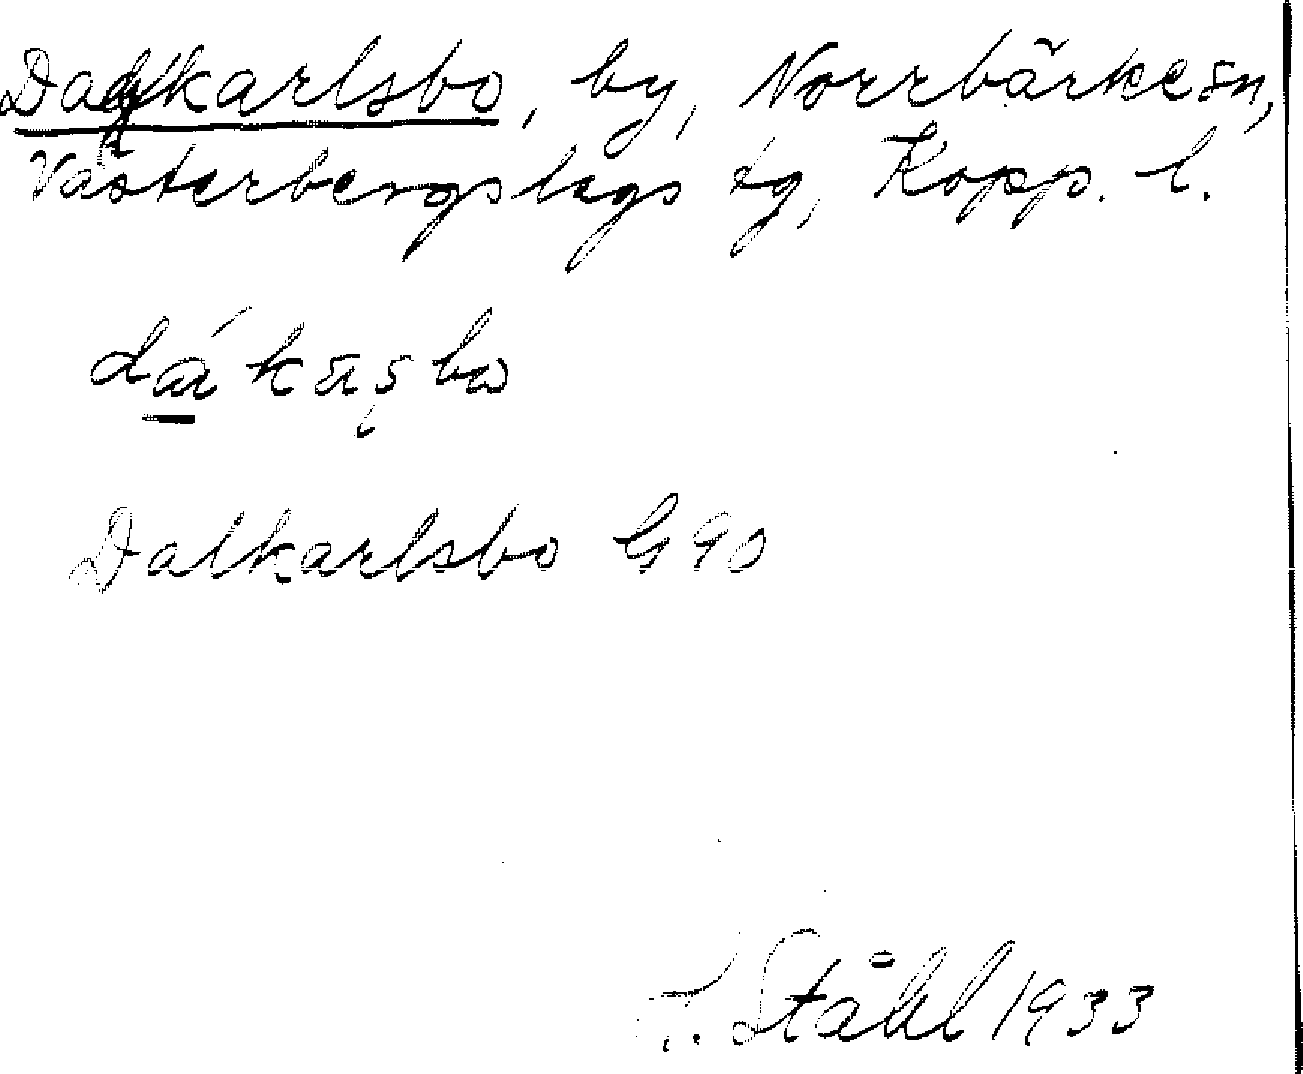 Dalkarlsbo, by, Norrbärke sn,
Västerbergslags tg, Kopp. l.
dákas̨bω
Dalkarlsbo G 90
Ståhl 1933